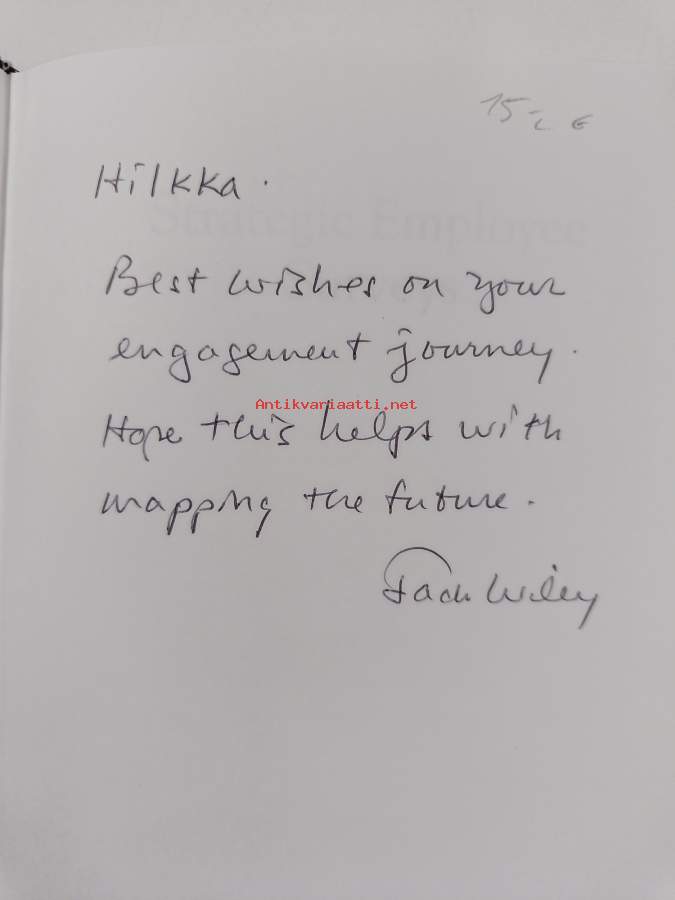 15,- €
Hilkka.
Strategic Employee
Surveys
Best wishes on your
engagement journey.
Antikvariaatti.net
Hope this helps with
mapping the future.
Jack Wiley